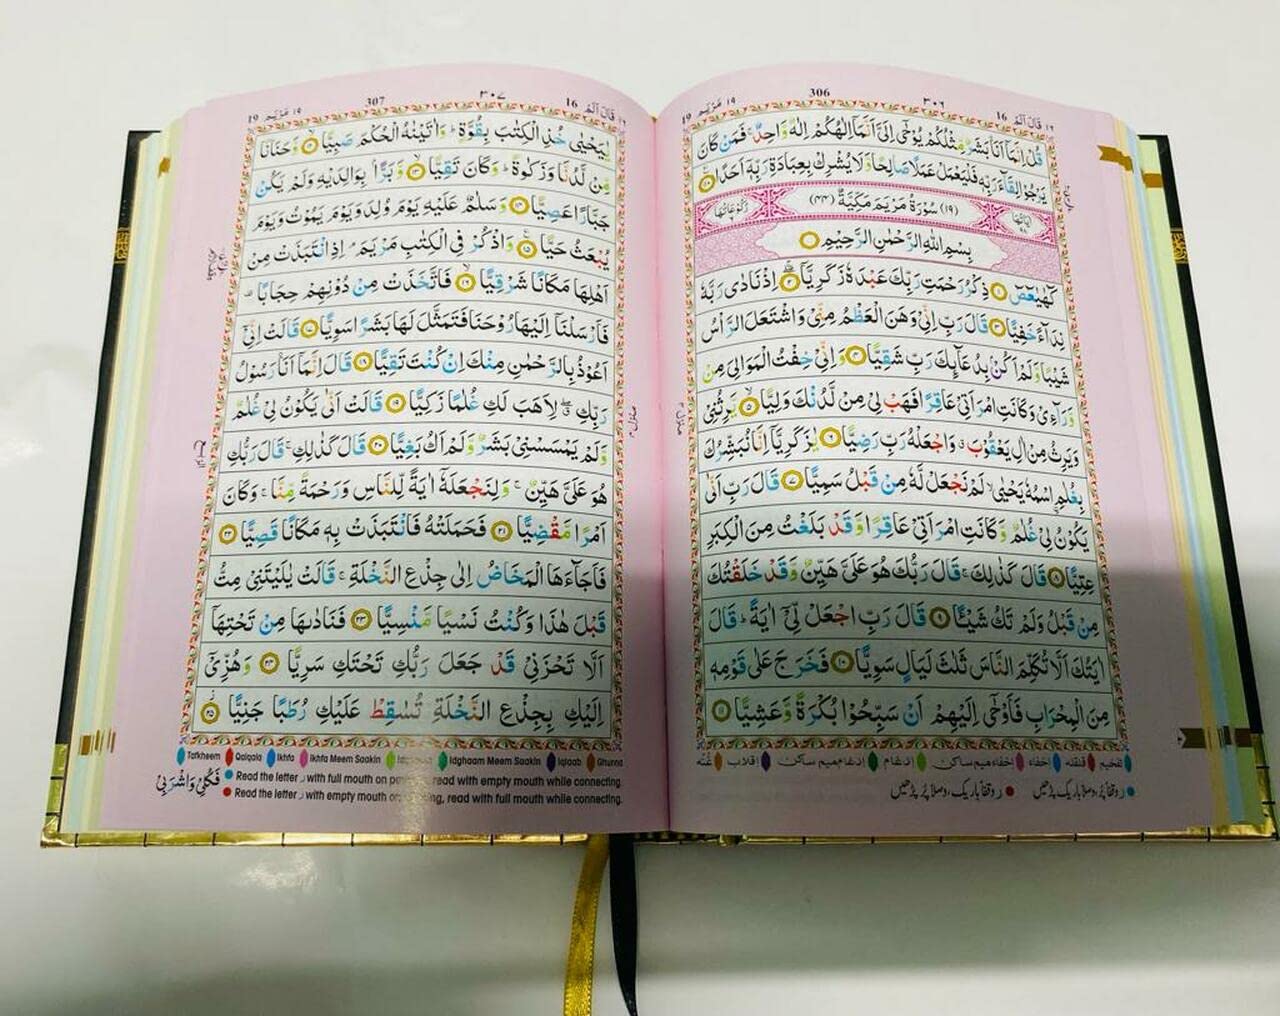 مَرْيَم ١٩ 19 306 ٣٠٦ قَالَ اَلَمْ ١٦ 16
قُلْ اِنَّمَاۤ اَنَا بَشَرٌ مِّثْلُكُمْ يُوْحٰۤى اِلَيَّ اَنَّمَاۤ اِلٰهُكُمْ اِلٰهٌ وَّاحِدٌ ۚ فَمَنْ كَانَ
يَرْجُوْا لِقَآءَ رَبِّهٖ فَلْيَعْمَلْ عَمَلًا صَالِحًا وَّلَا يُشْرِكْ بِعِبَادَةِ رَبِّهٖۤ اَحَدًا
اٰيَاتُهَا (١٩) سُوْرَةُ مَرْيَمَ مَكِّيَّةٌ (٤٤) رُكُوْعَاتُهَا
بِسْمِ اللهِ الرَّحْمٰنِ الرَّحِيْمِ
كٓهٰيٰعٓصٓ ۞ ذِكْرُ رَحْمَتِ رَبِّكَ عَبْدَهٗ زَكَرِيَّا ۞ اِذْ نَادٰى رَبَّهٗ
نِدَآءً خَفِيًّا ۞ قَالَ رَبِّ اِنِّيْ وَهَنَ الْعَظْمُ مِنِّيْ وَاشْتَعَلَ الرَّاْسُ
شَيْبًا وَّلَمْ اَكُنْۢ بِدُعَآئِكَ رَبِّ شَقِيًّا ۞ وَاِنِّيْ خِفْتُ الْمَوَالِيَ مِنْ
وَّرَآءِيْ وَكَانَتِ امْرَاَتِيْ عَاقِرًا فَهَبْ لِيْ مِنْ لَّدُنْكَ وَلِيًّا ۞ يَّرِثُنِيْ
وَيَرِثُ مِنْ اٰلِ يَعْقُوْبَ ۖ وَاجْعَلْهُ رَبِّ رَضِيًّا ۞ يٰزَكَرِيَّاۤ اِنَّا نُبَشِّرُكَ
بِغُلٰمِ ِۨاسْمُهٗ يَحْيٰى ۙ لَمْ نَجْعَلْ لَّهٗ مِنْ قَبْلُ سَمِيًّا ۞ قَالَ رَبِّ اَنّٰى
يَكُوْنُ لِيْ غُلٰمٌ وَّكَانَتِ امْرَاَتِيْ عَاقِرًا وَّقَدْ بَلَغْتُ مِنَ الْكِبَرِ
عِتِيًّا ۞ قَالَ كَذٰلِكَ ۚ قَالَ رَبُّكَ هُوَ عَلَيَّ هَيِّنٌ وَّقَدْ خَلَقْتُكَ
مِنْ قَبْلُ وَلَمْ تَكُ شَيْئًا ۞ قَالَ رَبِّ اجْعَلْ لِّيْۤ اٰيَةً ؕ قَالَ
اٰيَتُكَ اَلَّا تُكَلِّمَ النَّاسَ ثَلٰثَ لَيَالٍ سَوِيًّا ۞ فَخَرَجَ عَلٰى قَوْمِهٖ
مِنَ الْمِحْرَابِ فَاَوْحٰۤى اِلَيْهِمْ اَنْ سَبِّحُوْا بُكْرَةً وَّعَشِيًّا ۞
تفخيم قلقله اخفاء اخفاء ميم ساكن ادغام ادغام ميم ساكن اقلاب غنه
ر وقفاً پُر، وصلاً باريک پڑھيں ر وقفاً باريک، وصلاً پُر پڑھيں
مَرْيَم ١٩ 19 307 ٣٠٧ قَالَ اَلَمْ ١٦ 16
يٰيَحْيٰى خُذِ الْكِتٰبَ بِقُوَّةٍ ؕ وَاٰتَيْنٰهُ الْحُكْمَ صَبِيًّا ۞ وَّحَنَانًا
مِّنْ لَّدُنَّا وَزَكٰوةً ؕ وَكَانَ تَقِيًّا ۞ وَّبَرًّاۢ بِوَالِدَيْهِ وَلَمْ يَكُنْ
جَبَّارًا عَصِيًّا ۞ وَسَلٰمٌ عَلَيْهِ يَوْمَ وُلِدَ وَيَوْمَ يَمُوْتُ وَيَوْمَ
يُبْعَثُ حَيًّا ۞ وَاذْكُرْ فِي الْكِتٰبِ مَرْيَمَ ۘ اِذِ انْتَبَذَتْ مِنْ
اَهْلِهَا مَكَانًا شَرْقِيًّا ۞ فَاتَّخَذَتْ مِنْ دُوْنِهِمْ حِجَابًا ۪
فَاَرْسَلْنَاۤ اِلَيْهَا رُوْحَنَا فَتَمَثَّلَ لَهَا بَشَرًا سَوِيًّا ۞ قَالَتْ اِنِّيْۤ
اَعُوْذُ بِالرَّحْمٰنِ مِنْكَ اِنْ كُنْتَ تَقِيًّا ۞ قَالَ اِنَّمَاۤ اَنَا رَسُوْلُ
رَبِّكِ ۖ لِاَهَبَ لَكِ غُلٰمًا زَكِيًّا ۞ قَالَتْ اَنّٰى يَكُوْنُ لِيْ غُلٰمٌ
وَّلَمْ يَمْسَسْنِيْ بَشَرٌ وَّلَمْ اَكُ بَغِيًّا ۞ قَالَ كَذٰلِكِ ۚ قَالَ رَبُّكِ
هُوَ عَلَيَّ هَيِّنٌ ۚ وَلِنَجْعَلَهٗۤ اٰيَةً لِّلنَّاسِ وَرَحْمَةً مِّنَّا ۚ وَكَانَ
اَمْرًا مَّقْضِيًّا ۞ فَحَمَلَتْهُ فَانْتَبَذَتْ بِهٖ مَكَانًا قَصِيًّا ۞
فَاَجَآءَهَا الْمَخَاضُ اِلٰى جِذْعِ النَّخْلَةِ ۚ قَالَتْ يٰلَيْتَنِيْ مِتُّ
قَبْلَ هٰذَا وَكُنْتُ نَسْيًا مَّنْسِيًّا ۞ فَنَادٰىهَا مِنْ تَحْتِهَاۤ
اَلَّا تَحْزَنِيْ قَدْ جَعَلَ رَبُّكِ تَحْتَكِ سَرِيًّا ۞ وَهُزِّيْۤ
اِلَيْكِ بِجِذْعِ النَّخْلَةِ تُسٰقِطْ عَلَيْكِ رُطَبًا جَنِيًّا ۞
Tafkheem Qalqala Ikhfa Ikhfa Meem Saakin Idghaam Idghaam Meem Saakin Iqlaab Ghunna
Read the letter ر with full mouth on read with empty mouth while connecting.
Read the letter ر with empty mouth on read with full mouth while connecting.
فَكُلِيْ وَاشْرَبِيْ